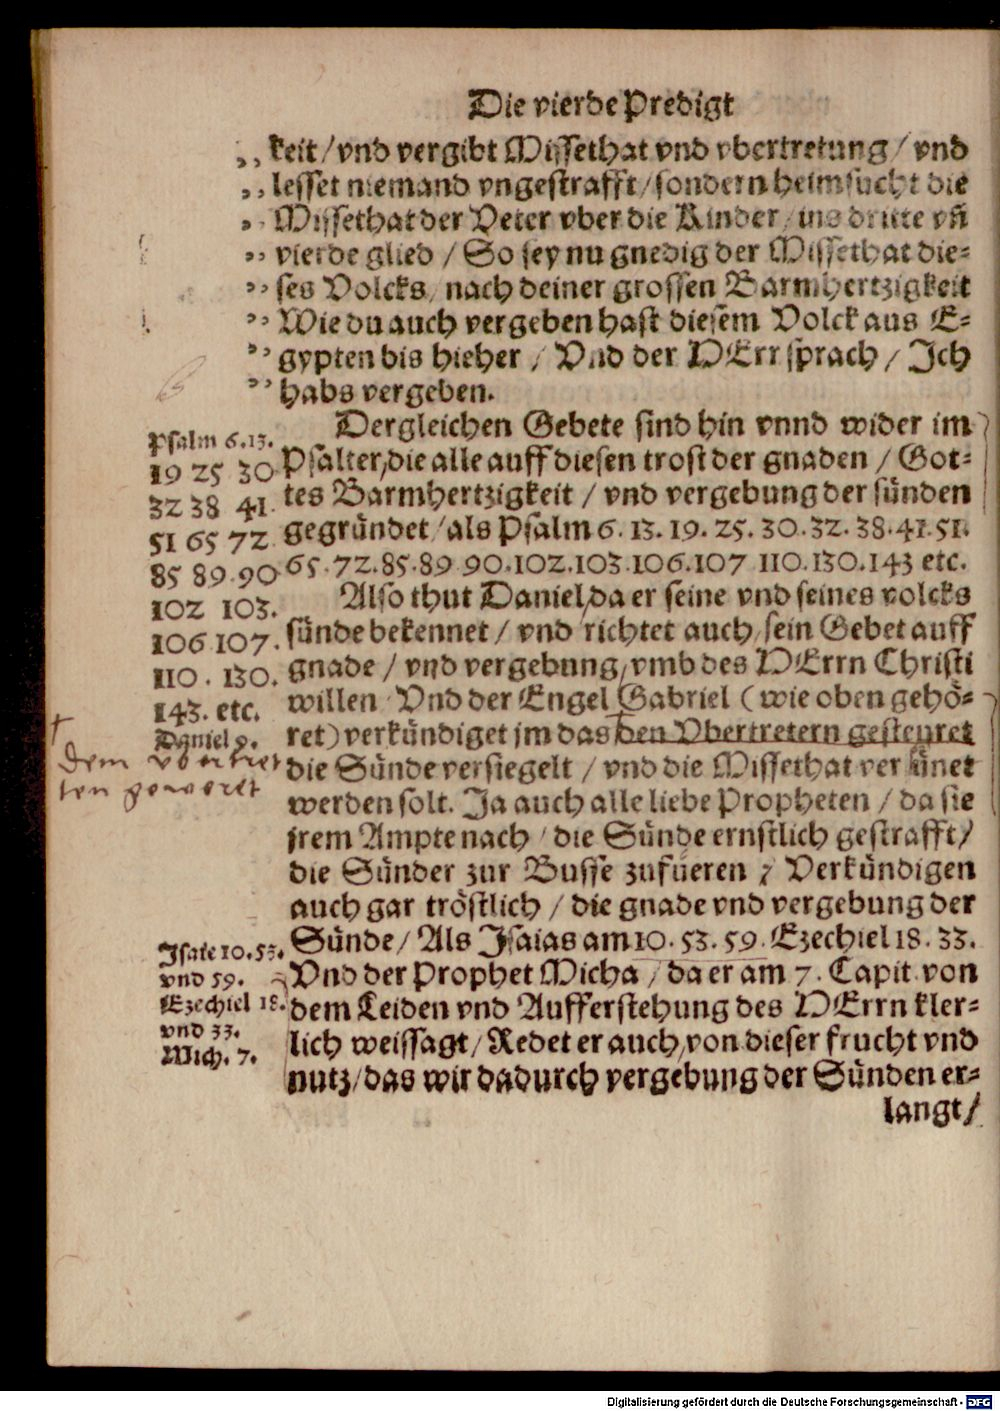 Die vierde Predigt
„ keit / vnd vergibt Missethat vnd vbertretung / vnd
„ lesset niemand vngestrafft / sondern heimsucht die
„ Missethat der Veter vber die Kinder / ins dritte vñ
„ vierde glied / So sey nu gnedig der Missethat die=
„ ses Volcks, nach deiner grossen Barmhertzigkeit
„ Wie du auch vergeben hast diesem Volck aus E=
„ gypten bis hieher / Vnd der HErr sprach / Ich
„ habs vergeben.
Dergleichen Gebete sind hin vnnd wider im
Psalter, die alle auff diesen trost der gnaden / Got=
tes Barmhertzigkeit / vnd vergebung der sünden
gegründet / als Psalm 6. 13. 19. 25. 30. 32. 38. 41. 51.
65. 72. 85. 89 90. 102. 103. 106. 107 110. 130. 143 etc.
Also thut Daniel, da er seine vnd seines volcks
sünde bekennet / vnd richtet auch, sein Gebet auff
gnade / vnd vergebung, vmb des HErrn Christi
willen Vnd der Engel Gabriel (wie oben gehö=
ret) verkündiget jm das den Vbertretern gesteuret
die Sünde versiegelt / vnd die Missethat versünet
werden solt. Ja auch alle liebe Propheten / da sie
jrem Ampte nach / die Sünde ernstlich gestrafft /
die Sünder zur Busse zufüeren / Verkündigen
auch gar tröstlich / die gnade vnd vergebung der
Sünde / Als Isaias am 10. 53. 59. Ezechiel 18. 33.
Vnd der Prophet Micha / da er am 7. Capit. von
dem Leiden vnd Aufferstehung des HErrn kler=
lich weissagt / Redet er auch, von dieser frucht vnd
nutz / das wir dadurch vergebung der Sünden er=
langt /
Psalm 6. 13.
19 25 30
32 38 41.
51 65 72
85 89 90
102 103.
106 107.
110. 130.
143. etc.
Daniel 9.
dem vbertret
ten geweret
Isaie 10. 53.
vnd 59.
Ezechiel 18.
vnd 33.
Mich. 7.
Digitalisierung gefördert durch die Deutsche Forschungsgemeinschaft - DFG